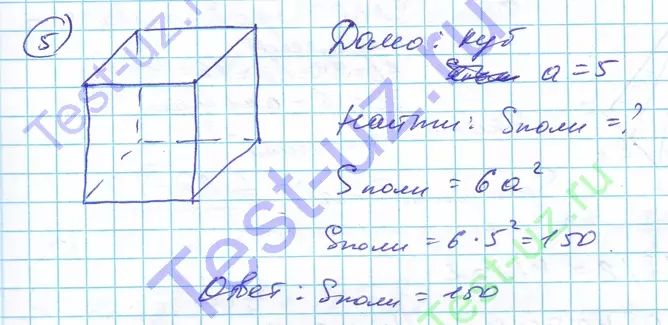 5
Дано: куб
a = 5
Найти: Sполн = ?
Sполн = 6a²
Sполн = 6 · 5² = 150
Ответ: Sполн = 150
Test-uz.ru
Test-uz.ru
Test-uz.ru